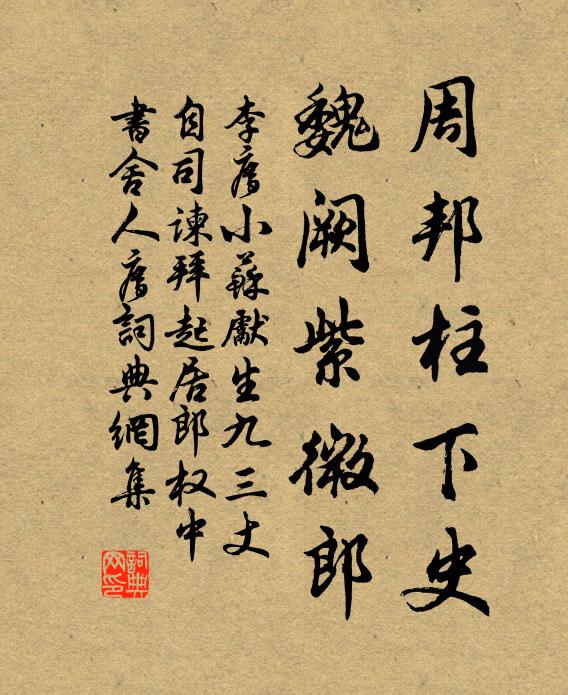 周邦柱下史
魏阙紫微郎
李廌小蘇獻生九三丈
自司諫拜起居郎权中
書舍人廌詞典網集
詞典
网印